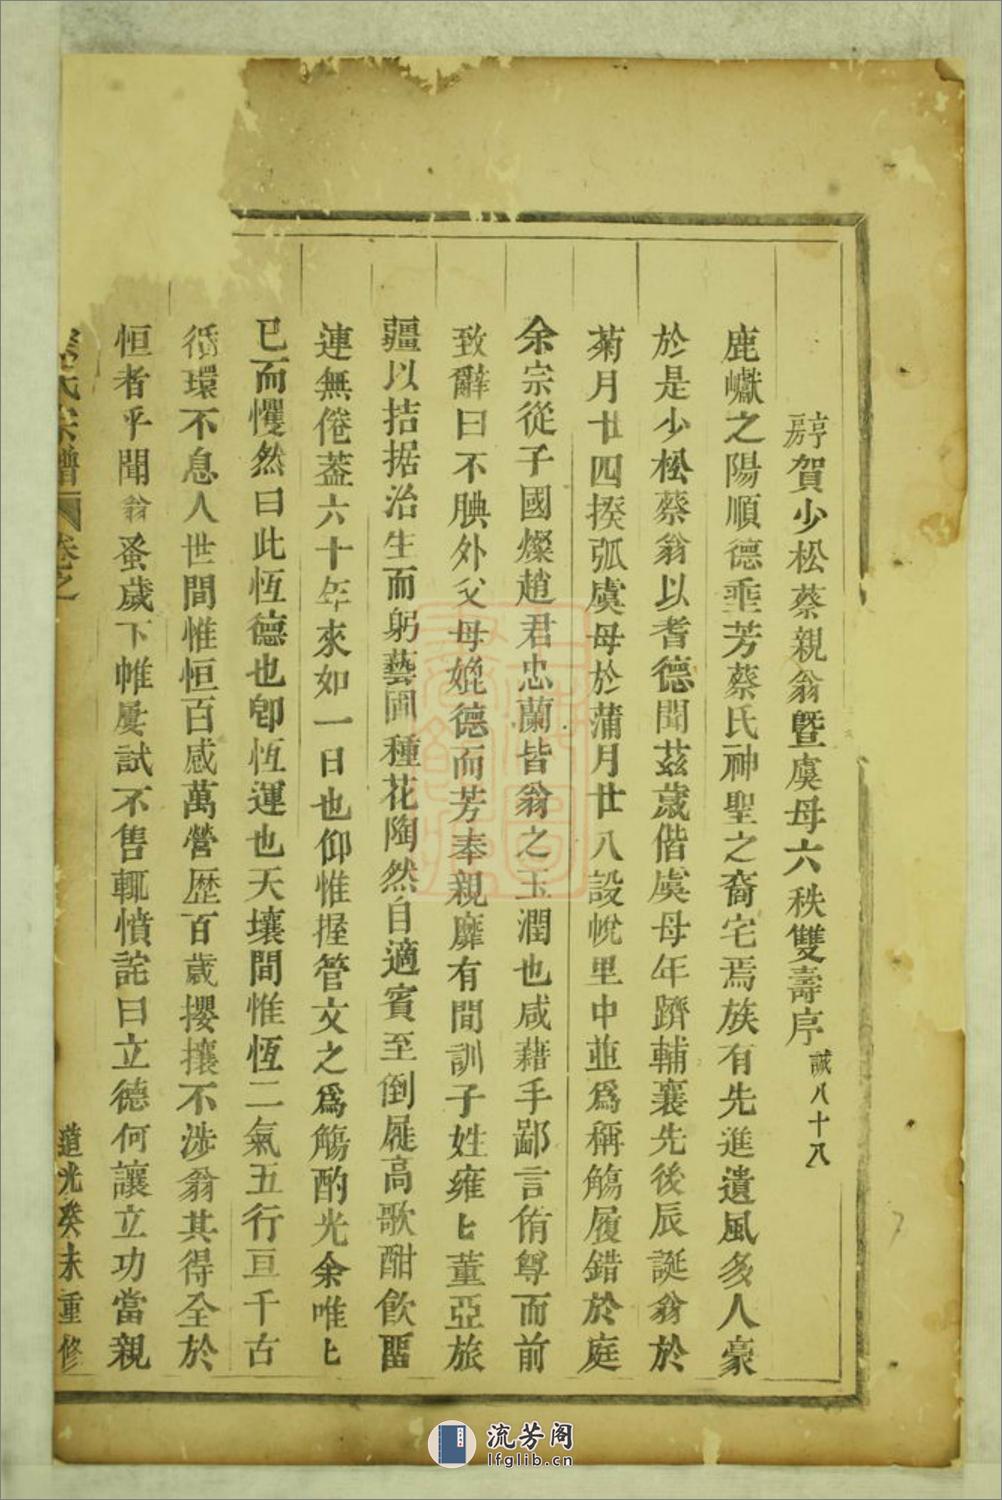 亨房賀少松蔡親翁暨虞母六秩雙壽序誠八十八
鹿巘之陽順德垂芳蔡氏神聖之裔宅焉族有先進遺風多人豪
於是少松蔡翁以耆德聞茲歲偕虞母年躋輔襄先後辰誕翁於
菊月廿四揆弧虞母於蒲月廿八設帨里中並爲稱觴履錯於庭
余宗從子國燦趙君忠蘭皆翁之玉潤也咸藉手鄙言侑尊而前
致辭曰不腆外父母婉德而芳奉親靡有間訓子姓雍匕董亞旅
疆以拮据治生而躬藝圃種花陶然自適賓至倒屣高歌酣飲畱
連無倦葢六十年來如一日也仰惟握管文之爲觴酌光余唯匕
已而懼然曰此恆德也卽恆運也天壤間惟恆二氣五行亘千古
循環不息人世間惟恒百感萬營歷百歲攖攘不涉翁其得全於
恒者乎聞翁蚤歲下帷屢試不售輒憤詫曰立德何讓立功當親
氏宗譜 卷之 道光癸未重修
流芳阁
lfglib.cn